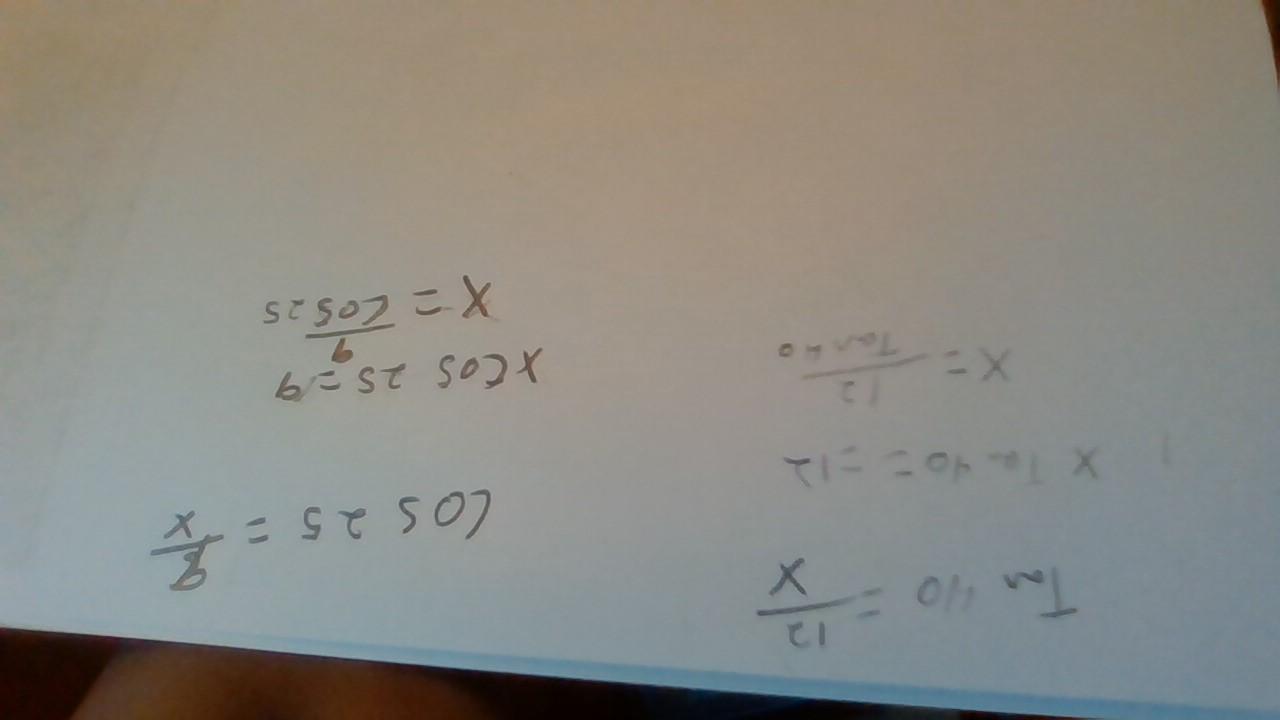 Tan 40 = 12/X
X Tan 40 = = 12
X = 12/Tan 40
Cos 25 = 9/X
X Cos 25 = 9
X = 9/Cos 25